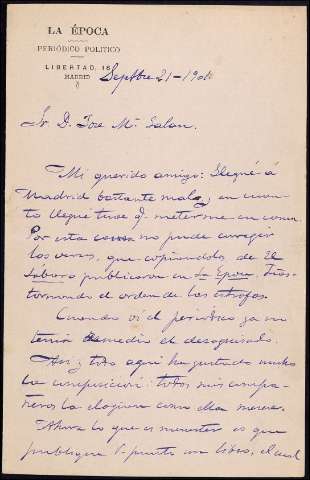 LA ÉPOCA
PERIÓDICO POLÍTICO
LIBERTAD, 18
MADRID
Septbre 21-1908
Sr. D. Jose Mª Galan.
Mi querido amigo: Llegué á
Madrid bastante malo, en cuan-
to llegué tuve q. meterme en cama
Por esta causa no pude corregir
los versos, que copiandolos de El
Lábaro publicaron en La Epoca, tras-
tornando el orden de las estrofas.
Cuando vi el periodico ya no
tenia remedio el desaguisado.
Asi y todo aqui ha gustado mucho
la composicion: todos mis compa-
ñeros la elogian como ella merece.
Ahora lo que es menester es que
publique V. pronto un libro, el cual